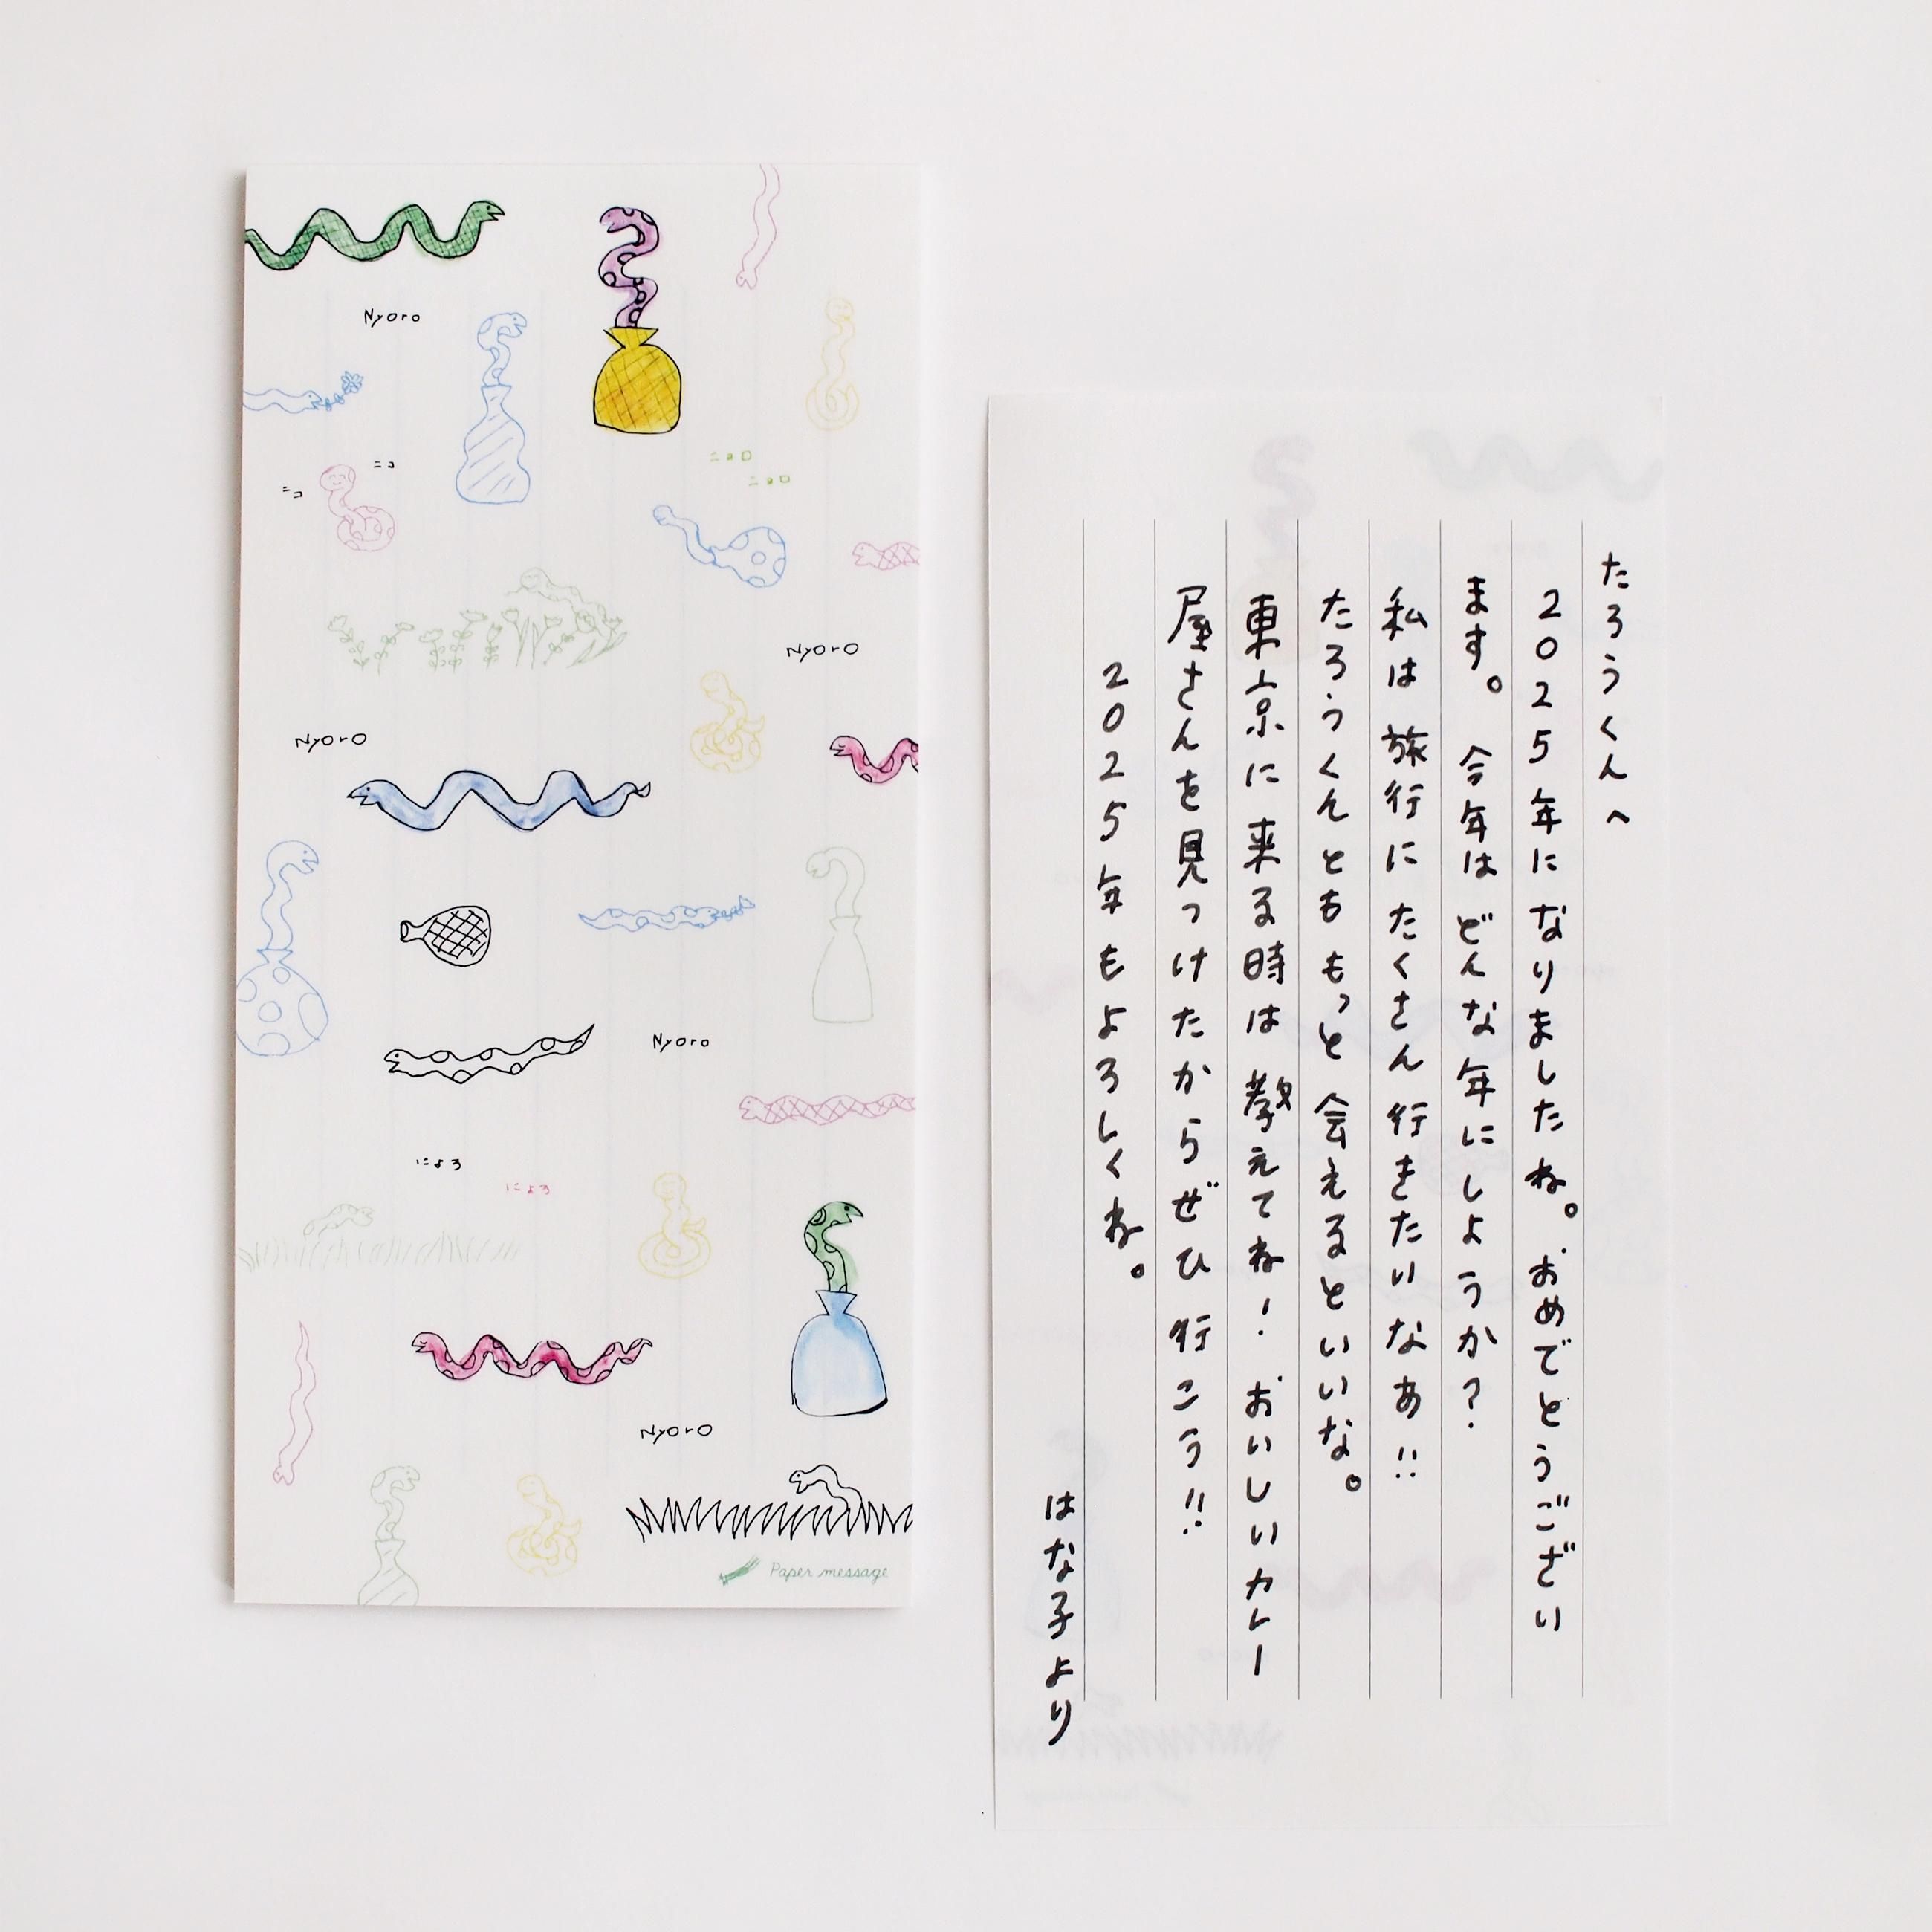 Nyoro
ニコ
ニコ
ニョロ
ニョロ
Nyoro
Nyoro
Nyoro
にょろ
にょろ
Nyoro
Paper message
たろうくんへ
2025年になりましたね。おめでとうござい
ます。今年はどんな年にしようか?
私は旅行にたくさん行きたいなあ!!
たろうくんとももっと会えるといいな。
東京に来る時は教えてね!おいしいカレー
屋さんを見つけたからぜひ行こう!!
2025年もよろしくね。
はな子より